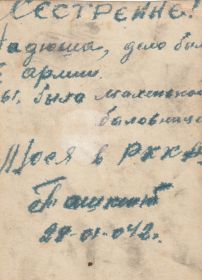 СЕСТРЕНКЕ!
Надюша, дело был
армии.
была маленькой
баловниц
в РККА
Ташкент
28-01-042г.